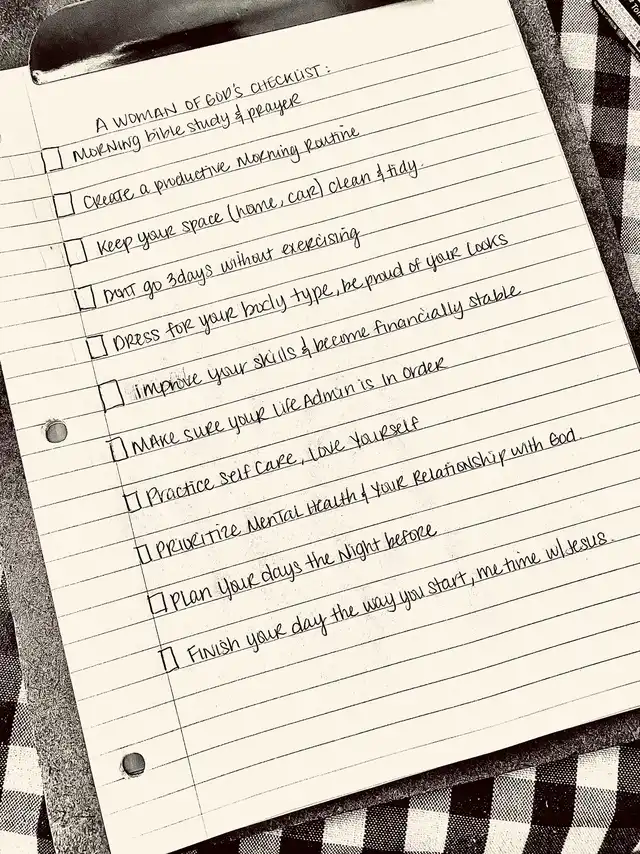 A WOMAN OF GOD'S CHECKLIST:
MORNING bible study & prayer
Create a productive Morning Routine
Keep your space (home, car) clean & tidy.
DONT go 3days without exercising
DRESS FOR your body type, be proud of your Looks
improve your skills & become financially stable
MAKE sure your Life Admin is In order
Practice Self Care, Love Yourself
PRIORITIZE Mental Health & Your Relationship with God.
PLAN Your days the Night before
FINISH your day the way you start, me time w/ Jesus.